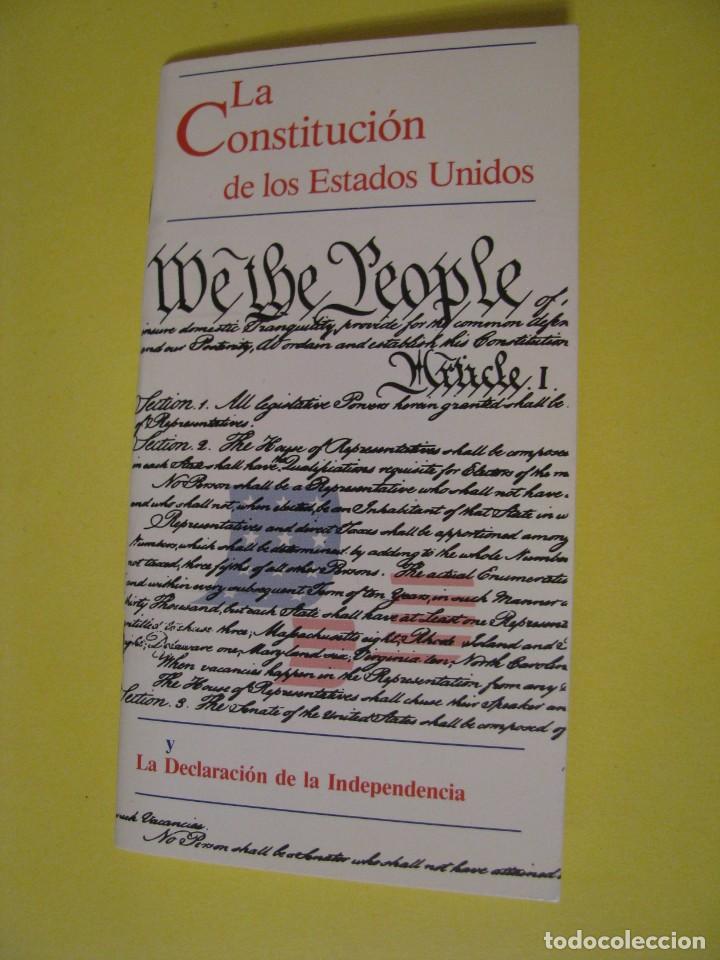 La
Constitución
de los Estados Unidos
We the People of
insure domestic Tranquility, provide for the common defen
and our Posterity, do ordain and establish this Constitution
Article. I.
Section. 1. All legislative Powers herein granted shall be
of Representatives.
Section. 2. The House of Representatives shall be compose
in each State shall have the Qualifications requisite for Electors of the m
No Person shall be a Representative who shall not have
and who shall not, when elected, be an Inhabitant of that State in w
Representatives and direct Taxes shall be apportioned among
Numbers, which shall be determined by adding to the whole Number
not taxed, three fifths of all other Persons. The actual Enumerati
and within every subsequent Term of ten Years, in such Manner
thirty Thousand, but each State shall have at Least one Represen
entitled to chuse three, Massachusetts eight, Rhode Island and
eight, Delaware one, Maryland six, Virginia ten, North Carolin
When vacancies happen in the Representation from any
The House of Representatives shall chuse their Speaker an
Section. 3. The Senate of the United States shall be composed of
y
La Declaración de la Independencia
such Vacancies.
No Person shall be a Senator who shall not have attained
todocoleccion.net